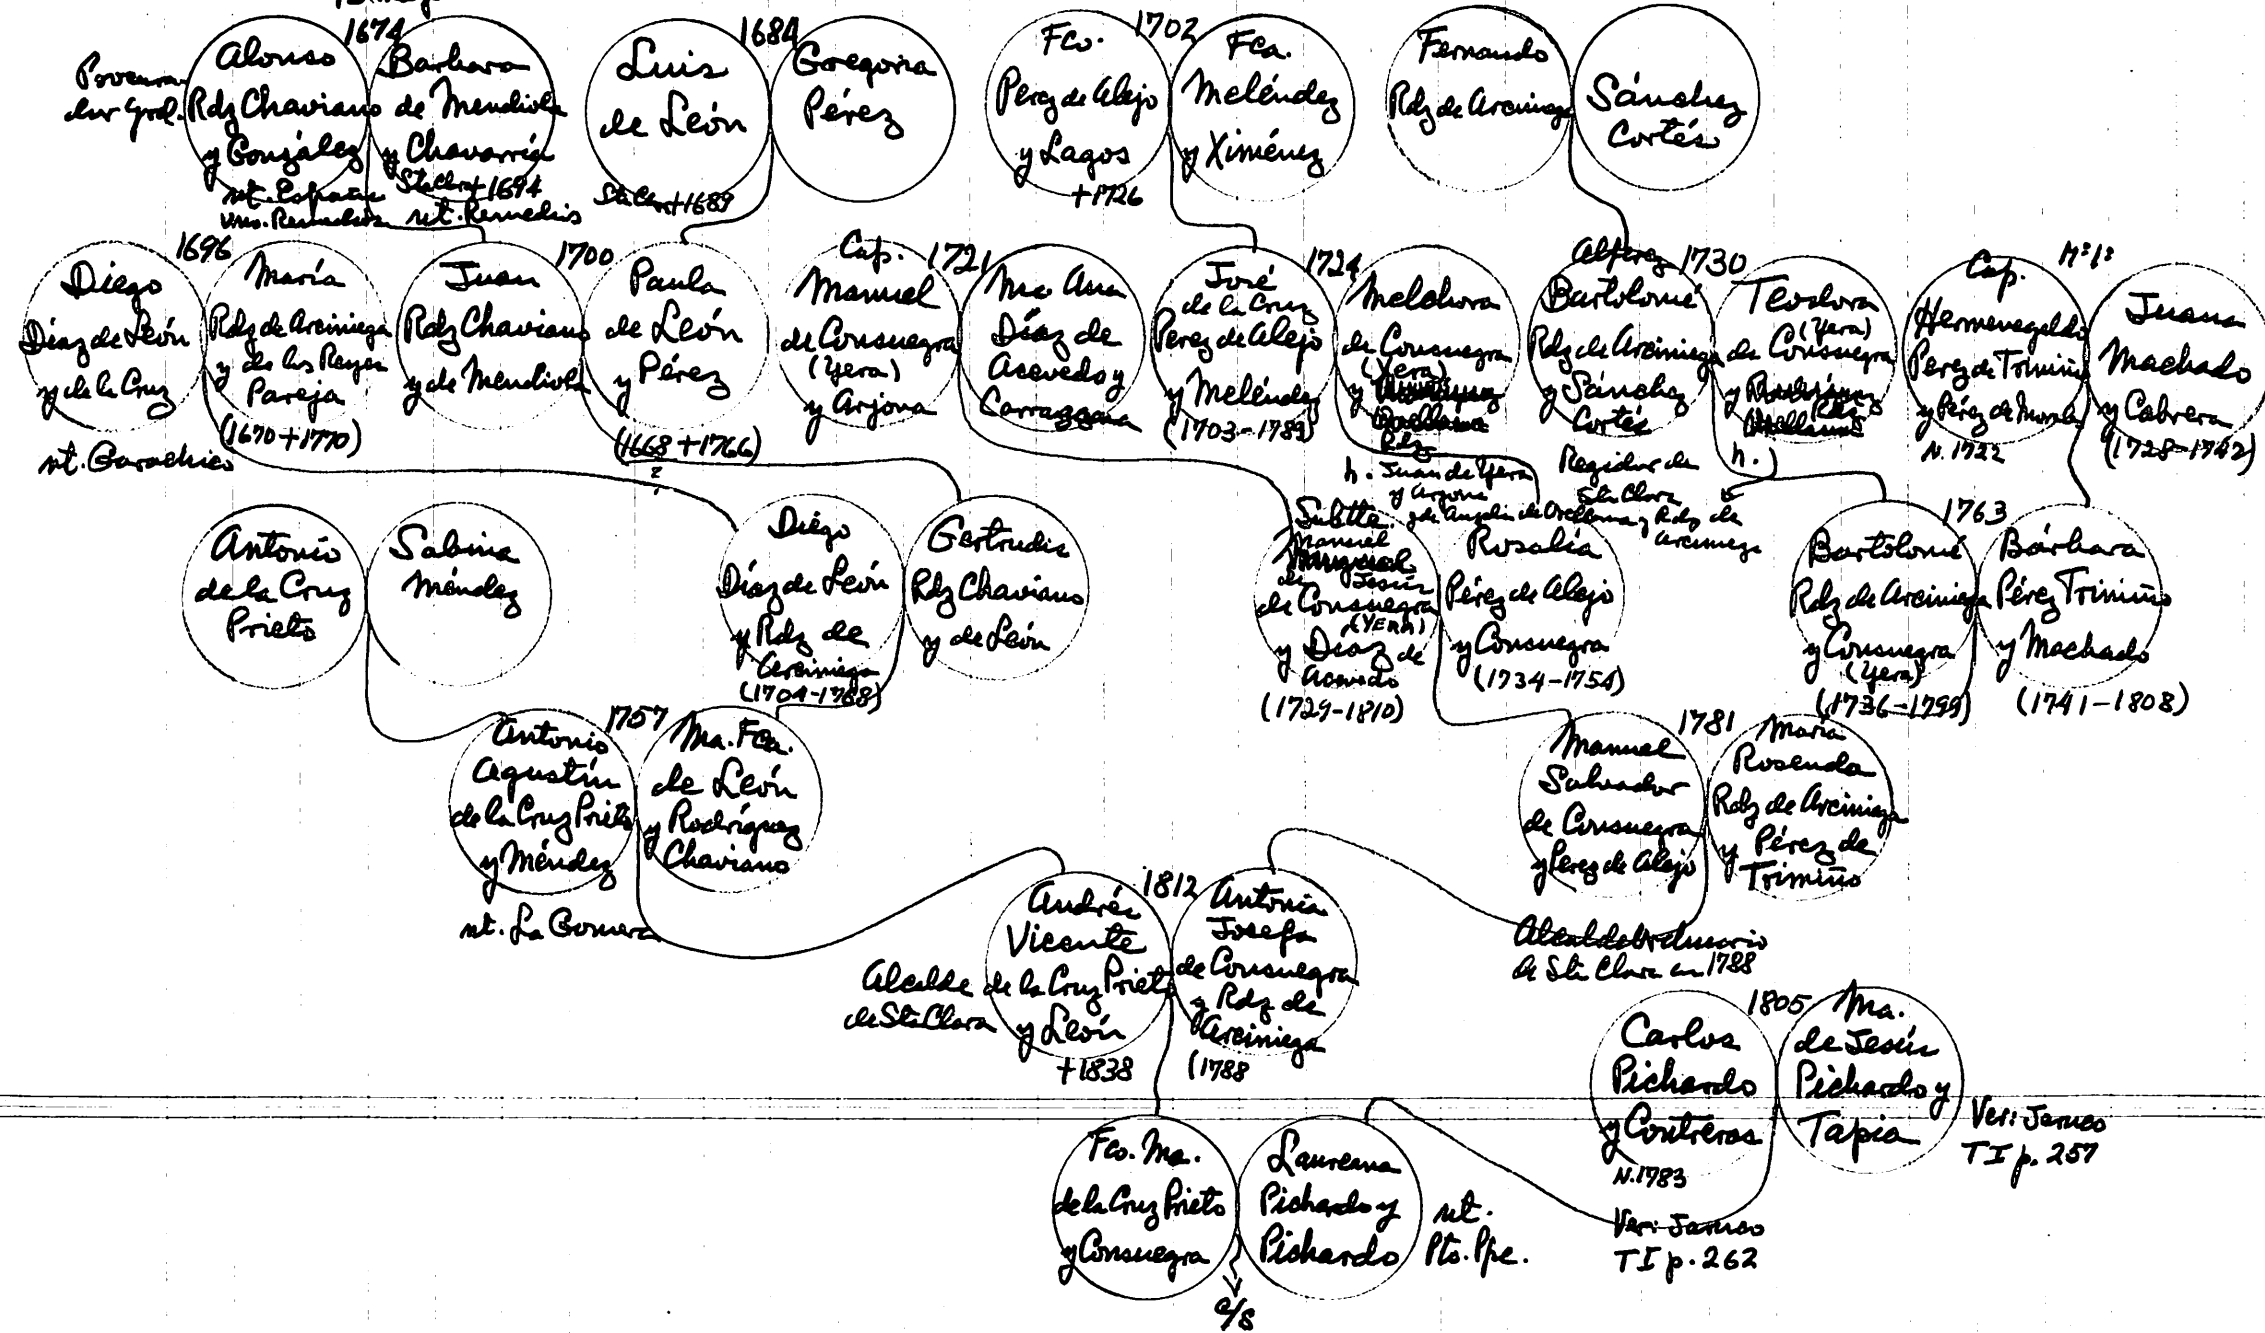 1674
Alonso
Rdz Chaviano
y González
nt. España
Barbara
de Mendiola
y Chavarría
Sta Clara +1694
nt. Remedios
1684
Luis
de León
Sta Clara +1689
Gregoria
Pérez
1702
Fco.
Perez de Alejo
y Lagos
+1726
Fca.
Meléndez
y Ximénez
Fernando
Rdz de Arciniega
Sánchez
Cortés
1696
Diego
Díaz de León
y de la Cruz
nt. Garachico
María
Rdz de Arciniega
y de los Reyes
Pareja
(1670+1770)
1700
Juan
Rdz Chaviano
y de Mendiola
Paula
de León
y Pérez
(1668+1766)
?
1721
Cap.
Manuel
de Consuegra
(Yera)
y Arjona
Ma Ana
Díaz de
Acevedo y
Carrazana
1724
José
de la Cruz
Perez de Alejo
y Meléndez
(1703-1789)
Melchora
de Consuegra
(Yera)
y
Rdz
h. Juan de Yera
y Arjona
y de Angelin de Orellana y Rdz de
Arciniega
1730
Alferez
Bartolomé
Rdz de Arciniega
y Sánchez
Cortés
Regidor de
Sta Clara
Teodora
(Yera)
de Consuegra
y
Rdz
h.
Mº 1º
Cap.
Hermenegildo
Perez de Trimiño
y Pérez de Morales
N. 1722
Juana
Machado
y Cabrera
(1728-1742)
Antonio
de la Cruz
Prieto
Sabina
Méndez
Diego
Díaz de León
y Rdz de
Arciniega
(1704-1788)
Gertrudis
Rdz Chaviano
y de León
Subtte.
Manuel
de Jesús
de Consuegra
(YERA)
y Díaz de
Acevedo
(1729-1810)
Rosalía
Pérez de Alejo
y Consuegra
(1734-1754)
1763
Bartolomé
Rdz de Arciniega
y Consuegra
(Yera)
(1736-1799)
Bárbara
Pérez Trimiño
y Machado
(1741-1808)
1757
Antonio
Agustín
de la Cruz Prieto
y Méndez
nt. La Gomera
Ma. Fca.
de León
y Rodríguez
Chaviano
1781
Manuel
Salvador
de Consuegra
y Perez de Alejo
María
Rosenda
Rdz de Arciniega
y Pérez de
Trimiño
Alcalde Ordinario
de Sta Clara en 1788
1812
Andrés
Vicente
de la Cruz Prieto
y León
+1838
Alcalde
de Sta Clara
Antonia
Josefa
de Consuegra
y Rdz de
Arciniega
(1788
1805
Carlos
Pichardo
y Contreras
N.1783
Ver: Jaruco
T I p. 262
Ma.
de Jesús
Pichardo y
Tapia
Ver: Jaruco
T I p. 257
Fco. Ma.
de la Cruz Prieto
y Consuegra
Laureana
Pichardo y
Pichardo
nt.
Pto. Ppe.
c/s